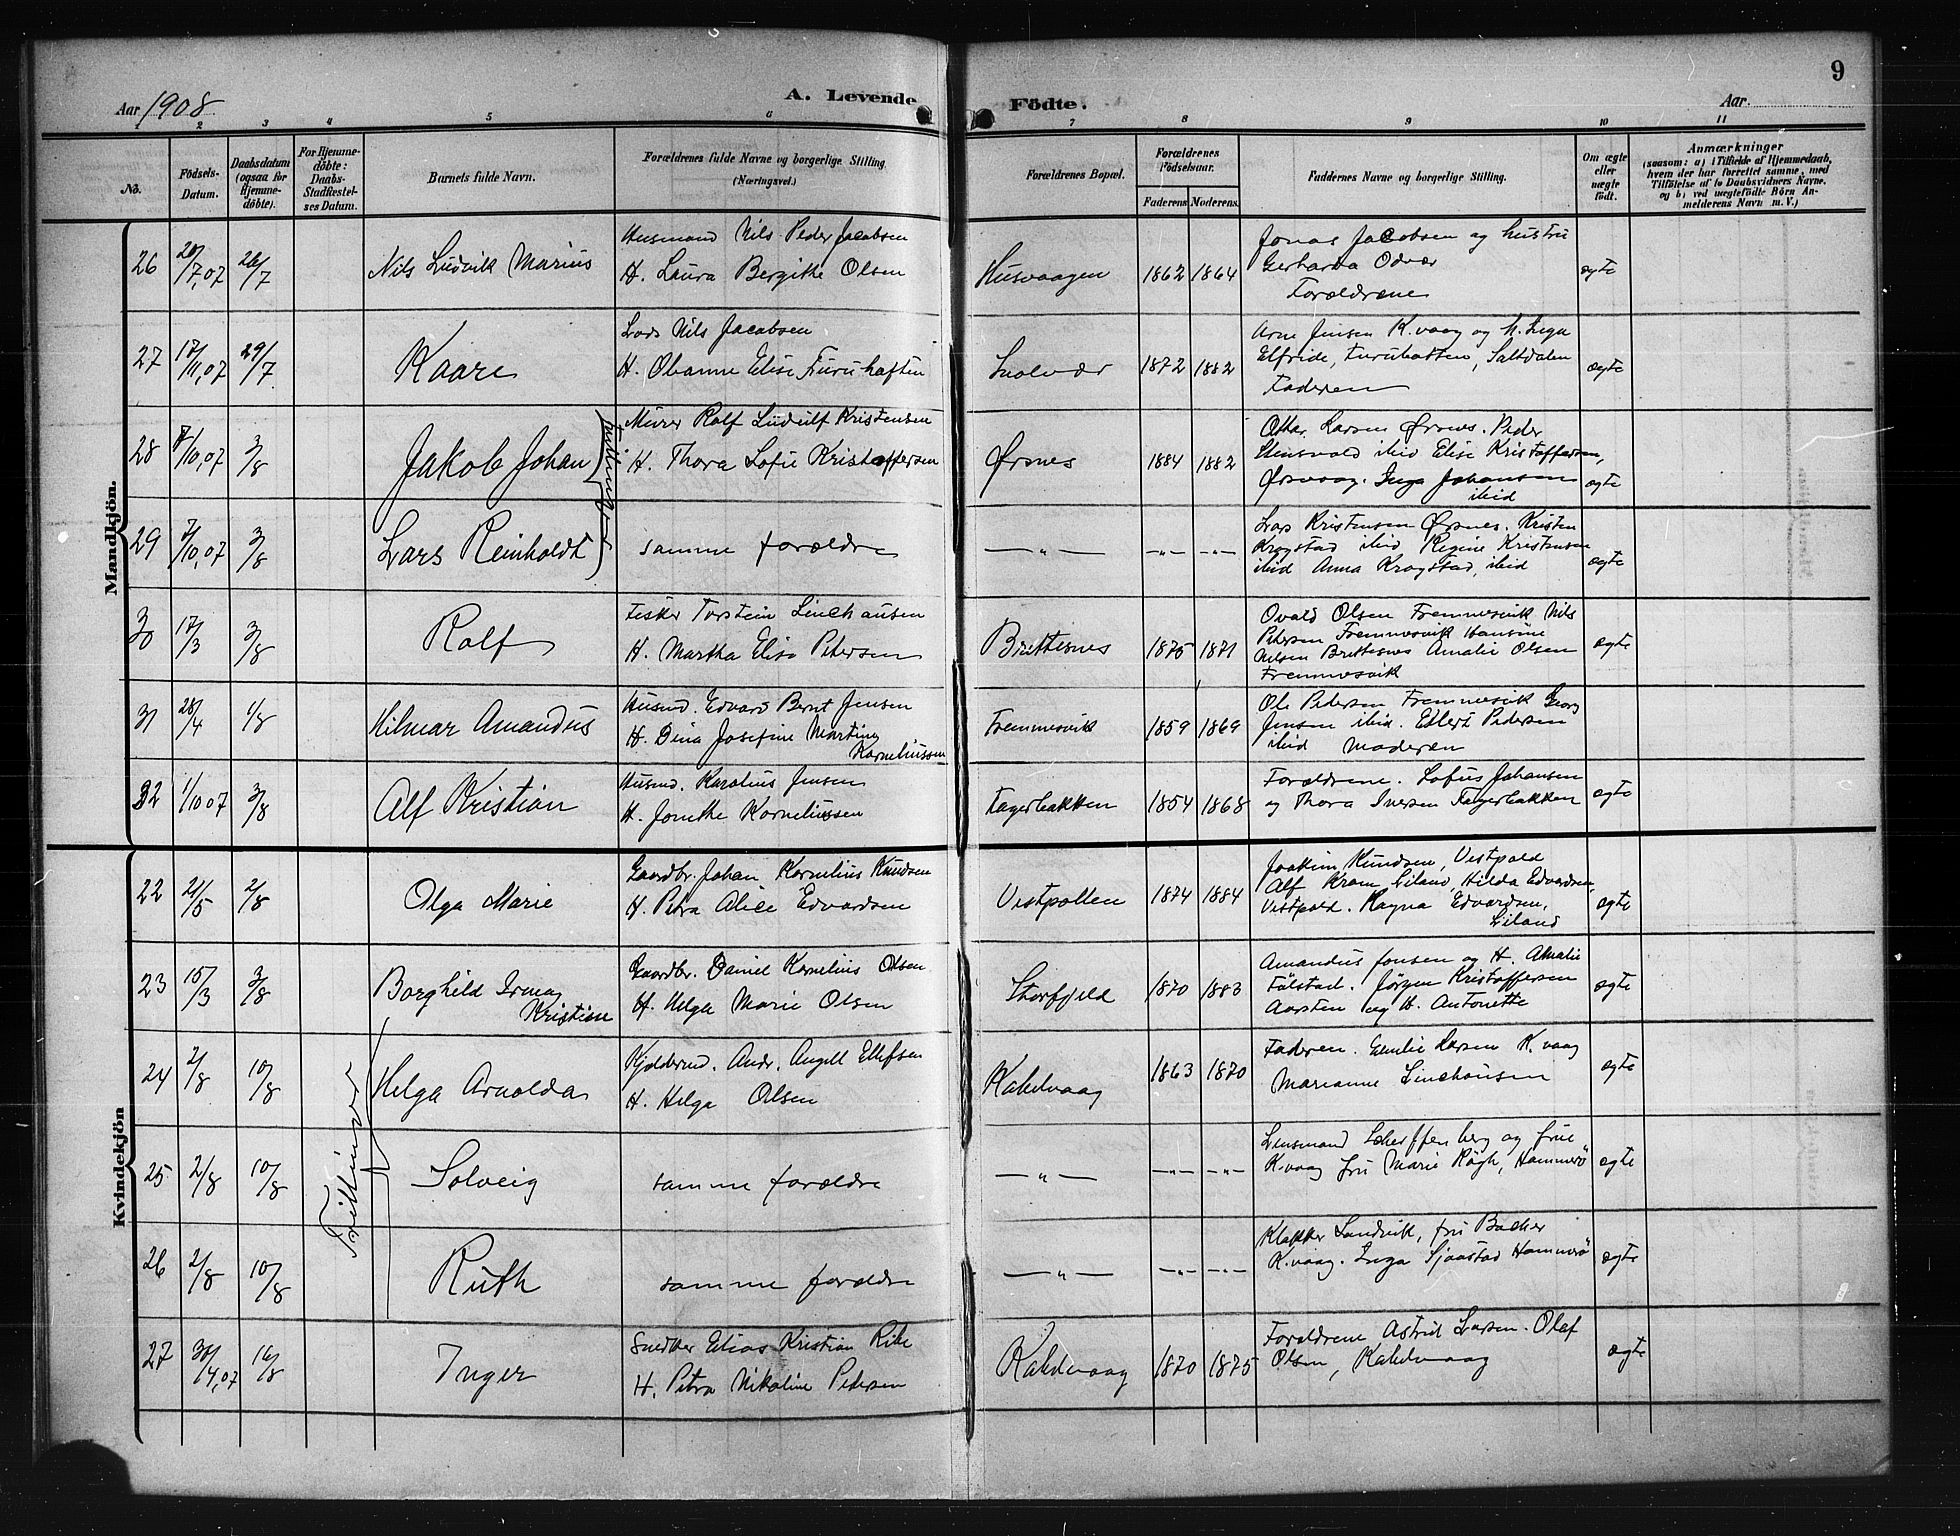 9
Aar 1908
A. Levende
Födte.
Aar.
1 2 3 4 5 6 7 8 9 10 11
No.
Födsels-
Datum.
Daabsdatum
(ogsaa for
Hjemme-
döbte).
For Hjemme-
döbte:
Daabs-
Stadfæstel-
ses Datum.
Barnets fulde Navn.
Forældrenes fulde Navne og borgerlige Stilling.
(Næringsvei.)
Forældrenes Bopæl.
Forældrenes
Födselsaar.
Faderens. Moderens.
Faddernes Navne og borgerlige Stilling.
Om ægte
eller
uægte
födt.
Anmærkninger
(saasom: a) i Tilfælde af Hjemmedaab,
hvem der har forrettet samme, med
Tilföielse af to Daabsvidners Navne,
og b) ved uægtefödte Börn An-
melderens Navn m. V.)
Mandkjön.
26 20/7,07 26/7 Nils Ludvik Marius
Husmand Nils Peder Jacobsen
H. Laura Bergitte Olsen
Husvaagen 1862 1864
Jonas Jacobsen og hustru
Gerharda Odvær
Forældrene
ægte
27 17/11,07 29/7 Kaare
Lods Nils Jacobsen
H. Ovanne Elise Furuhaften
Svolvær 1872 1882
Arne Jensen K.vaag og H. Inga
Elfride, Furuhatten, Saltdalen
Faderen
ægte
28 7/10,07 3/8 Jakob Johan
Tvillinger
Murer Rolf Ludulf Kristensen
H. Thora Sofie Kristoffersen
Ørsnes 1884 1882
Ottar Larsen Ørsnes. Peder
Stensvold ibid Elise Kristoffersen,
Ørsvaag. Inga Johansen
ibid
ægte
29 7/10,07 3/8 Lars Reinholdt
samme forældre
— „ — -„- -„-
Lars Kristensen Ørsnes. Kristen
Krogstad ibid Regine Kristensen
ibid Anna Krogstad, ibid
ægte
30 17/3 3/8 Rolf
Fisker Torstein Linchausen
H. Martha Elise Petersen
Brettesnes 1875 1871
Ovald Olsen Fremmesvik Nils
Petersen Fremmesvik Hansine
Nilsen Brettesnes Amalie Olsen
Fremmesvik
ægte
31 28/4 1/8 Hilmar Amandus
Husmd. Edvard Bernt Jensen
H. Dina Josefine Martine
Korneliussen
Fremmesvik 1859 1869
Ole Pedersen Fremmesvik Georg
Jensen ibid. Edlert Pedersen
ibid Moderen
32 1/10 07 3/8 Alf Kristian
Husmd. Karolius Jensen
H. Jonette Korneliussen
Fagerbakken 1854 1868
Forældrene. Sofus Johansen
og Thora Iversen Fagerbakken
ægte
Kvindekjön
22 21/5 2/8 Olga Marie
Gaardbr. Johan Kornelius Knudsen
H. Petra Alice Edvardsen
Vestpollen 1874 1884
Joakim Knudsen, Vestpold
Alf Kram Liland, Hilda Edvardsen,
Vestpold. Ragna Edvardsen,
Liland
ægte
23 15/3 3/8 Borghild Irma
Kristine
Gaardbr. Daniel Kornelius Olsen
H. Helga Marie Olsen
Storfjeld 1870 1883
Amandus Jonsen og H. Amalie
Følstad. Jørgen Kristoffersen
Aarsten og H. Antonette
ægte
Trillinger
24 2/8 10/8 Helga Arnolda
Andr. Angell Ellefsen
H. Helga Olsen
Kabelvaag 1863 1870
Faderen. Emilie Larsen K.vaag
Marianne Linchausen
ægte
25 2/8 10/8 Solveig
samme forældre
— „ — -„- -„-
Lensmand Scherffenberg og frue
K.vaag Fru Marie Røgh, Hammerö
ægte
26 2/8 10/8 Ruth
samme forældre
— „ — -„- -„-
Klokker Sandvik, fru Backer
K.vaag. Inga Sjaastad Hammerö
ægte
27 30/14,07 16/8 Inger
Snedker Elias Kristian Rike
H. Petra Nikoline Pedersen
Kabelvaag 1870 1875
Forældrene Astrid Larsen. Olaf
Olsen, Kabelvaag
ægte